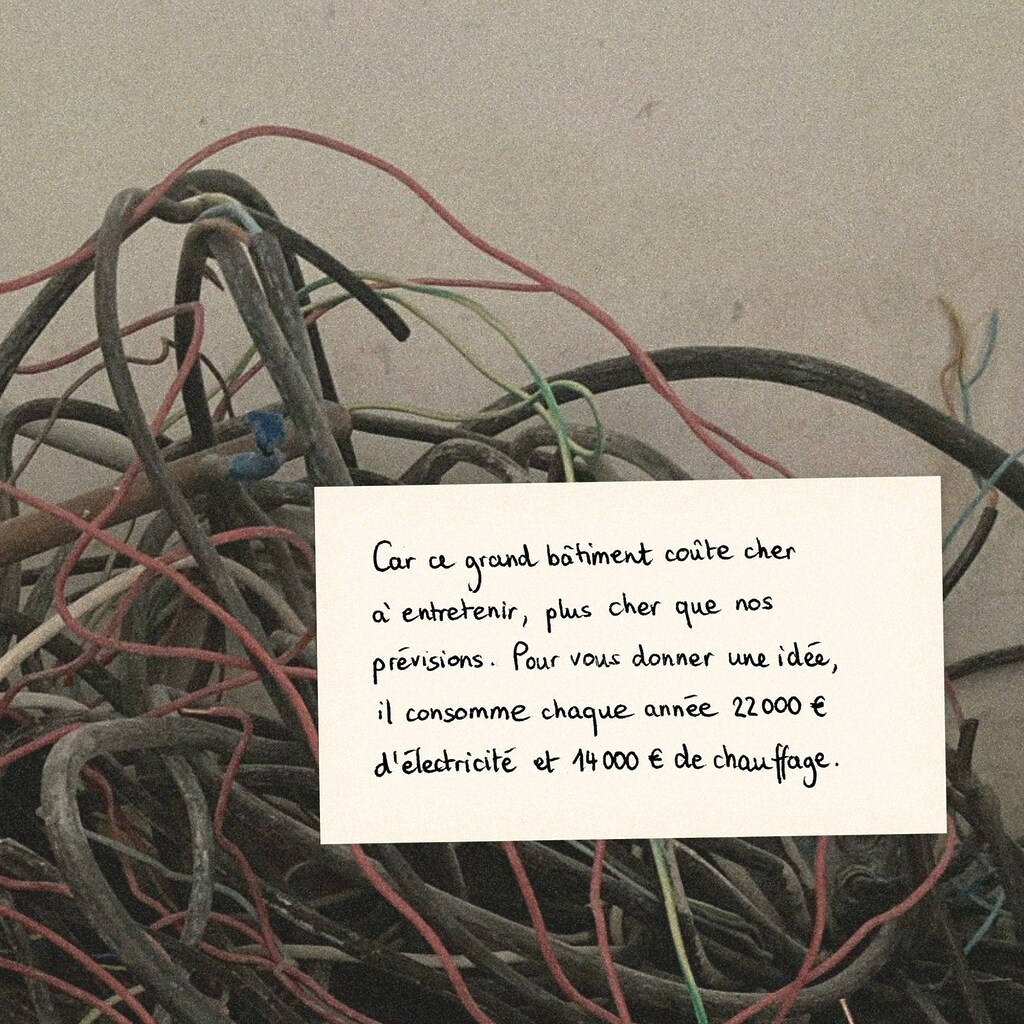 Car ce grand bâtiment coûte cher
à entretenir, plus cher que nos
prévisions. Pour vous donner une idée,
il consomme chaque année 22 000 €
d'électricité et 14 000 € de chauffage.